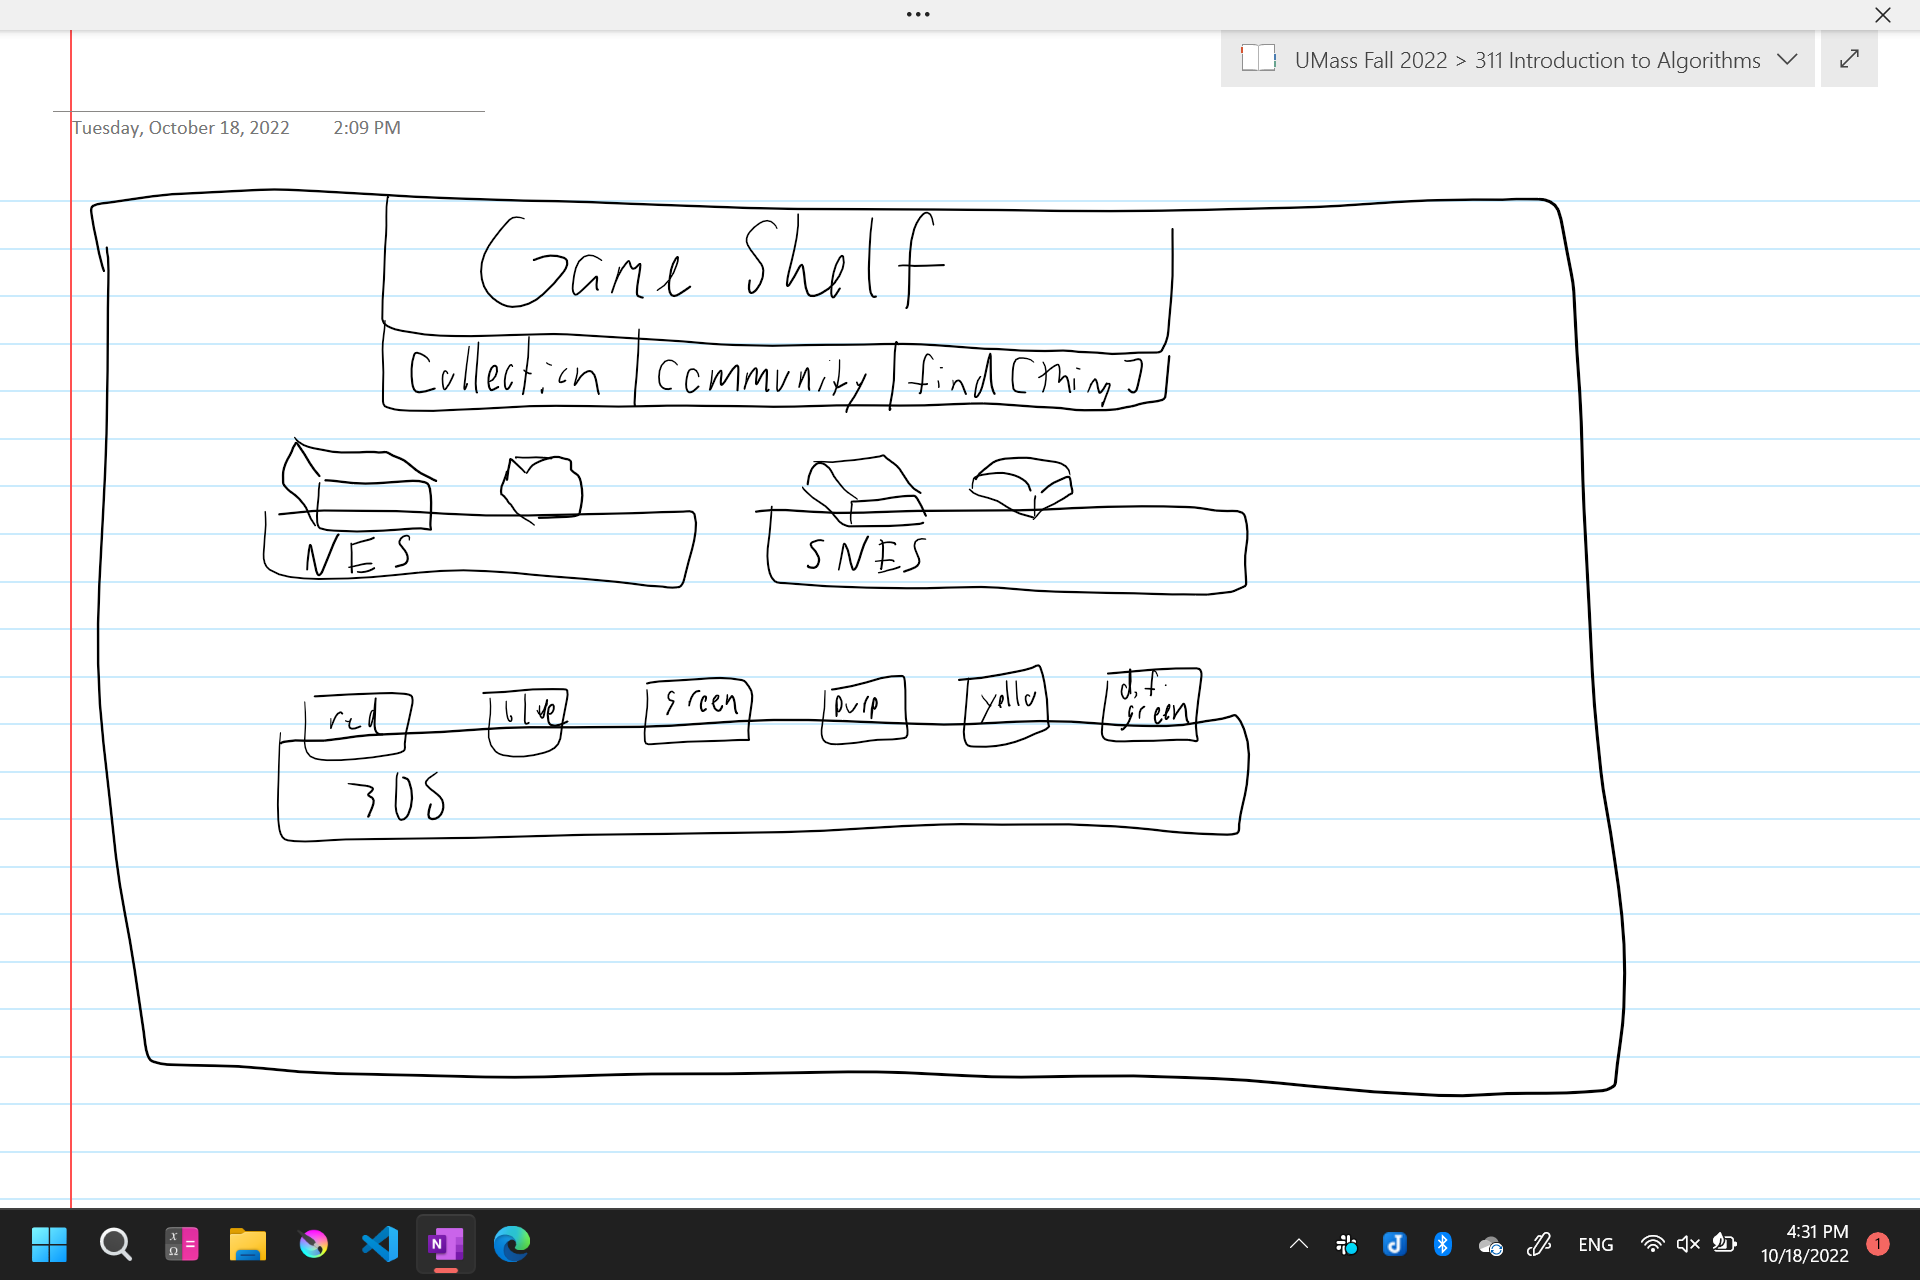 UMass Fall 2022 > 311 Introduction to Algorithms
Tuesday, October 18, 2022 2:09 PM
Game Shelf
Collection Community find [thing]
NES SNES
red blue green purp yello dif. green
3DS
ENG
4:31 PM
10/18/2022
1